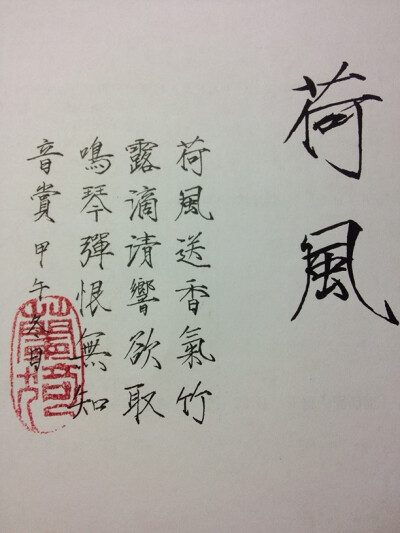 荷風
荷風送香氣竹
露滴清響欲取
鳴琴彈恨無知
音賞 甲午 日